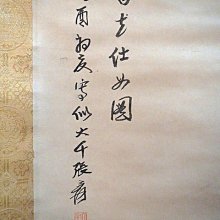 仕女圖
酉初夏寫似大千張爰